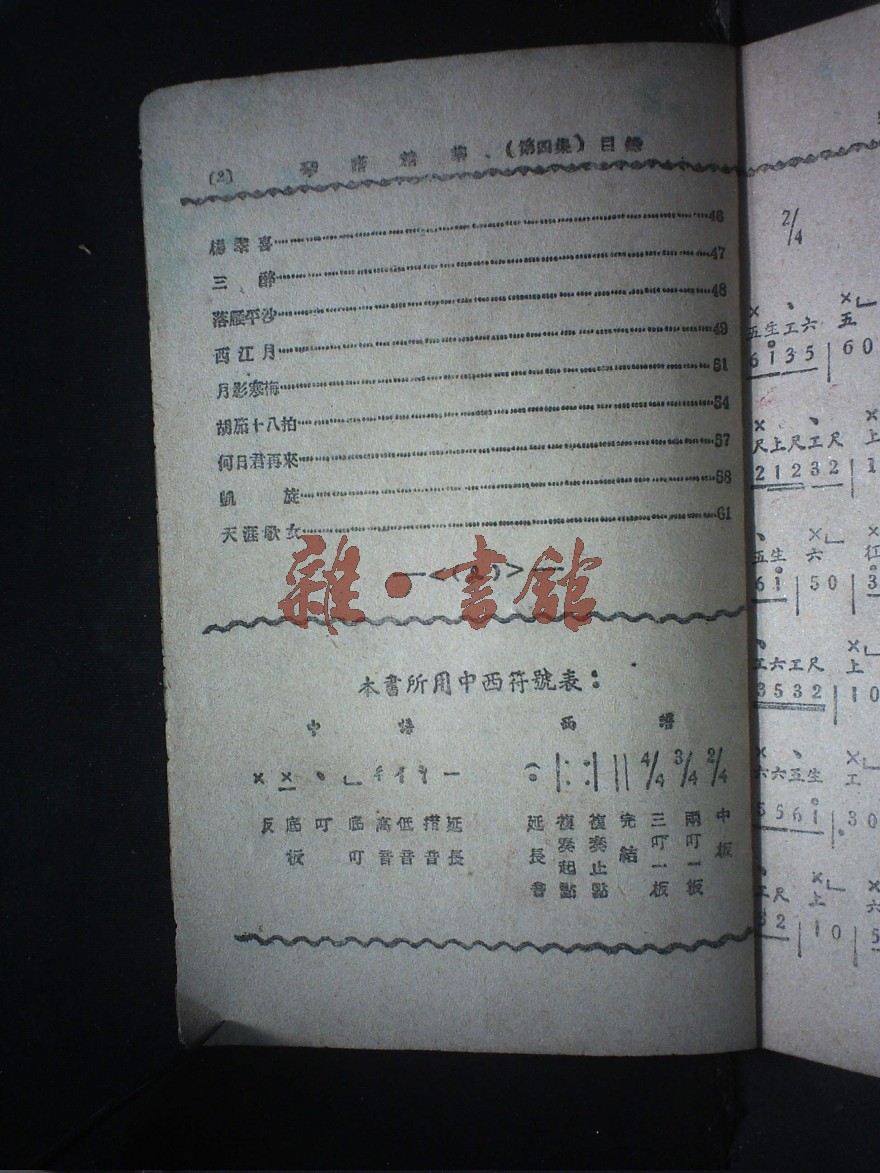 (2) 琴譜精華 (第四集) 目錄
楊翠喜 46
三醉 47
落雁平沙 48
西江月 49
月影寒梅 51
胡笳十八拍 54
何日君再來 57
凱旋 58
天涯歌女 61
—<(2)>—
雜·書館
本書所用中西符號表:
中譜
× 反
× 底板
丶 叮
底叮
高音
低音
揩音
— 延長
西譜
延長音
|: 複奏起點
:| 複奏止點
|| 完結
4/4 三叮一板
3/4 兩叮一板
2/4 中板
2/4
× 丶 ×
五生工六 五
6 i 3 5 | 6 0
× 丶 ×
尺上尺工尺 上
2 1 2 3 2 | 1
五生 六
6 i | 5 0 | 3
工六工尺 上
3 5 3 2 | 1 0
× 丶 ×
六六五生 工
5 5 6 i | 3 0
工尺 上 六
3 2 | 1 0 | 5